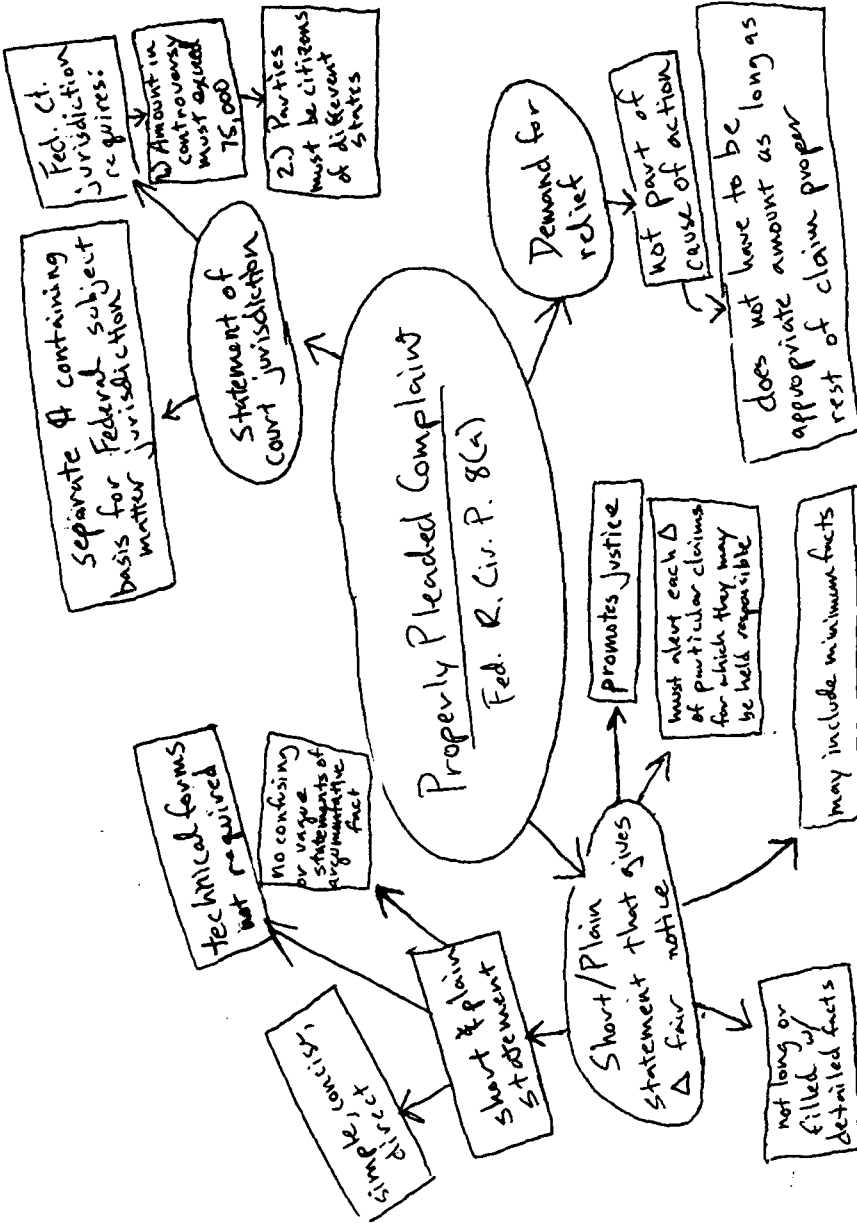 Properly Pleaded Complaint
Fed. R. Civ. P. 8(a)
Statement of
court jurisdiction
Separate ¶ containing
basis for Federal subject
matter jurisdiction
Fed. Ct.
jurisdiction
requires:
1.) Amount in
controversy
must exceed
75,000
2.) Parties
must be citizens
of different
states
Demand for
relief
not part of
cause of action
does not have to be
appropriate amount as long as
rest of claim proper
Short/Plain
statement that gives
Δ fair notice
promotes justice
must alert each Δ
of particular claims
for which they may
be held responsible
may include minimum facts
not long or
filled w/
detailed facts
short & plain
statement
simple, concise,
direct
technical forms
not required
no confusing
or vague
statements of
argumentative
fact